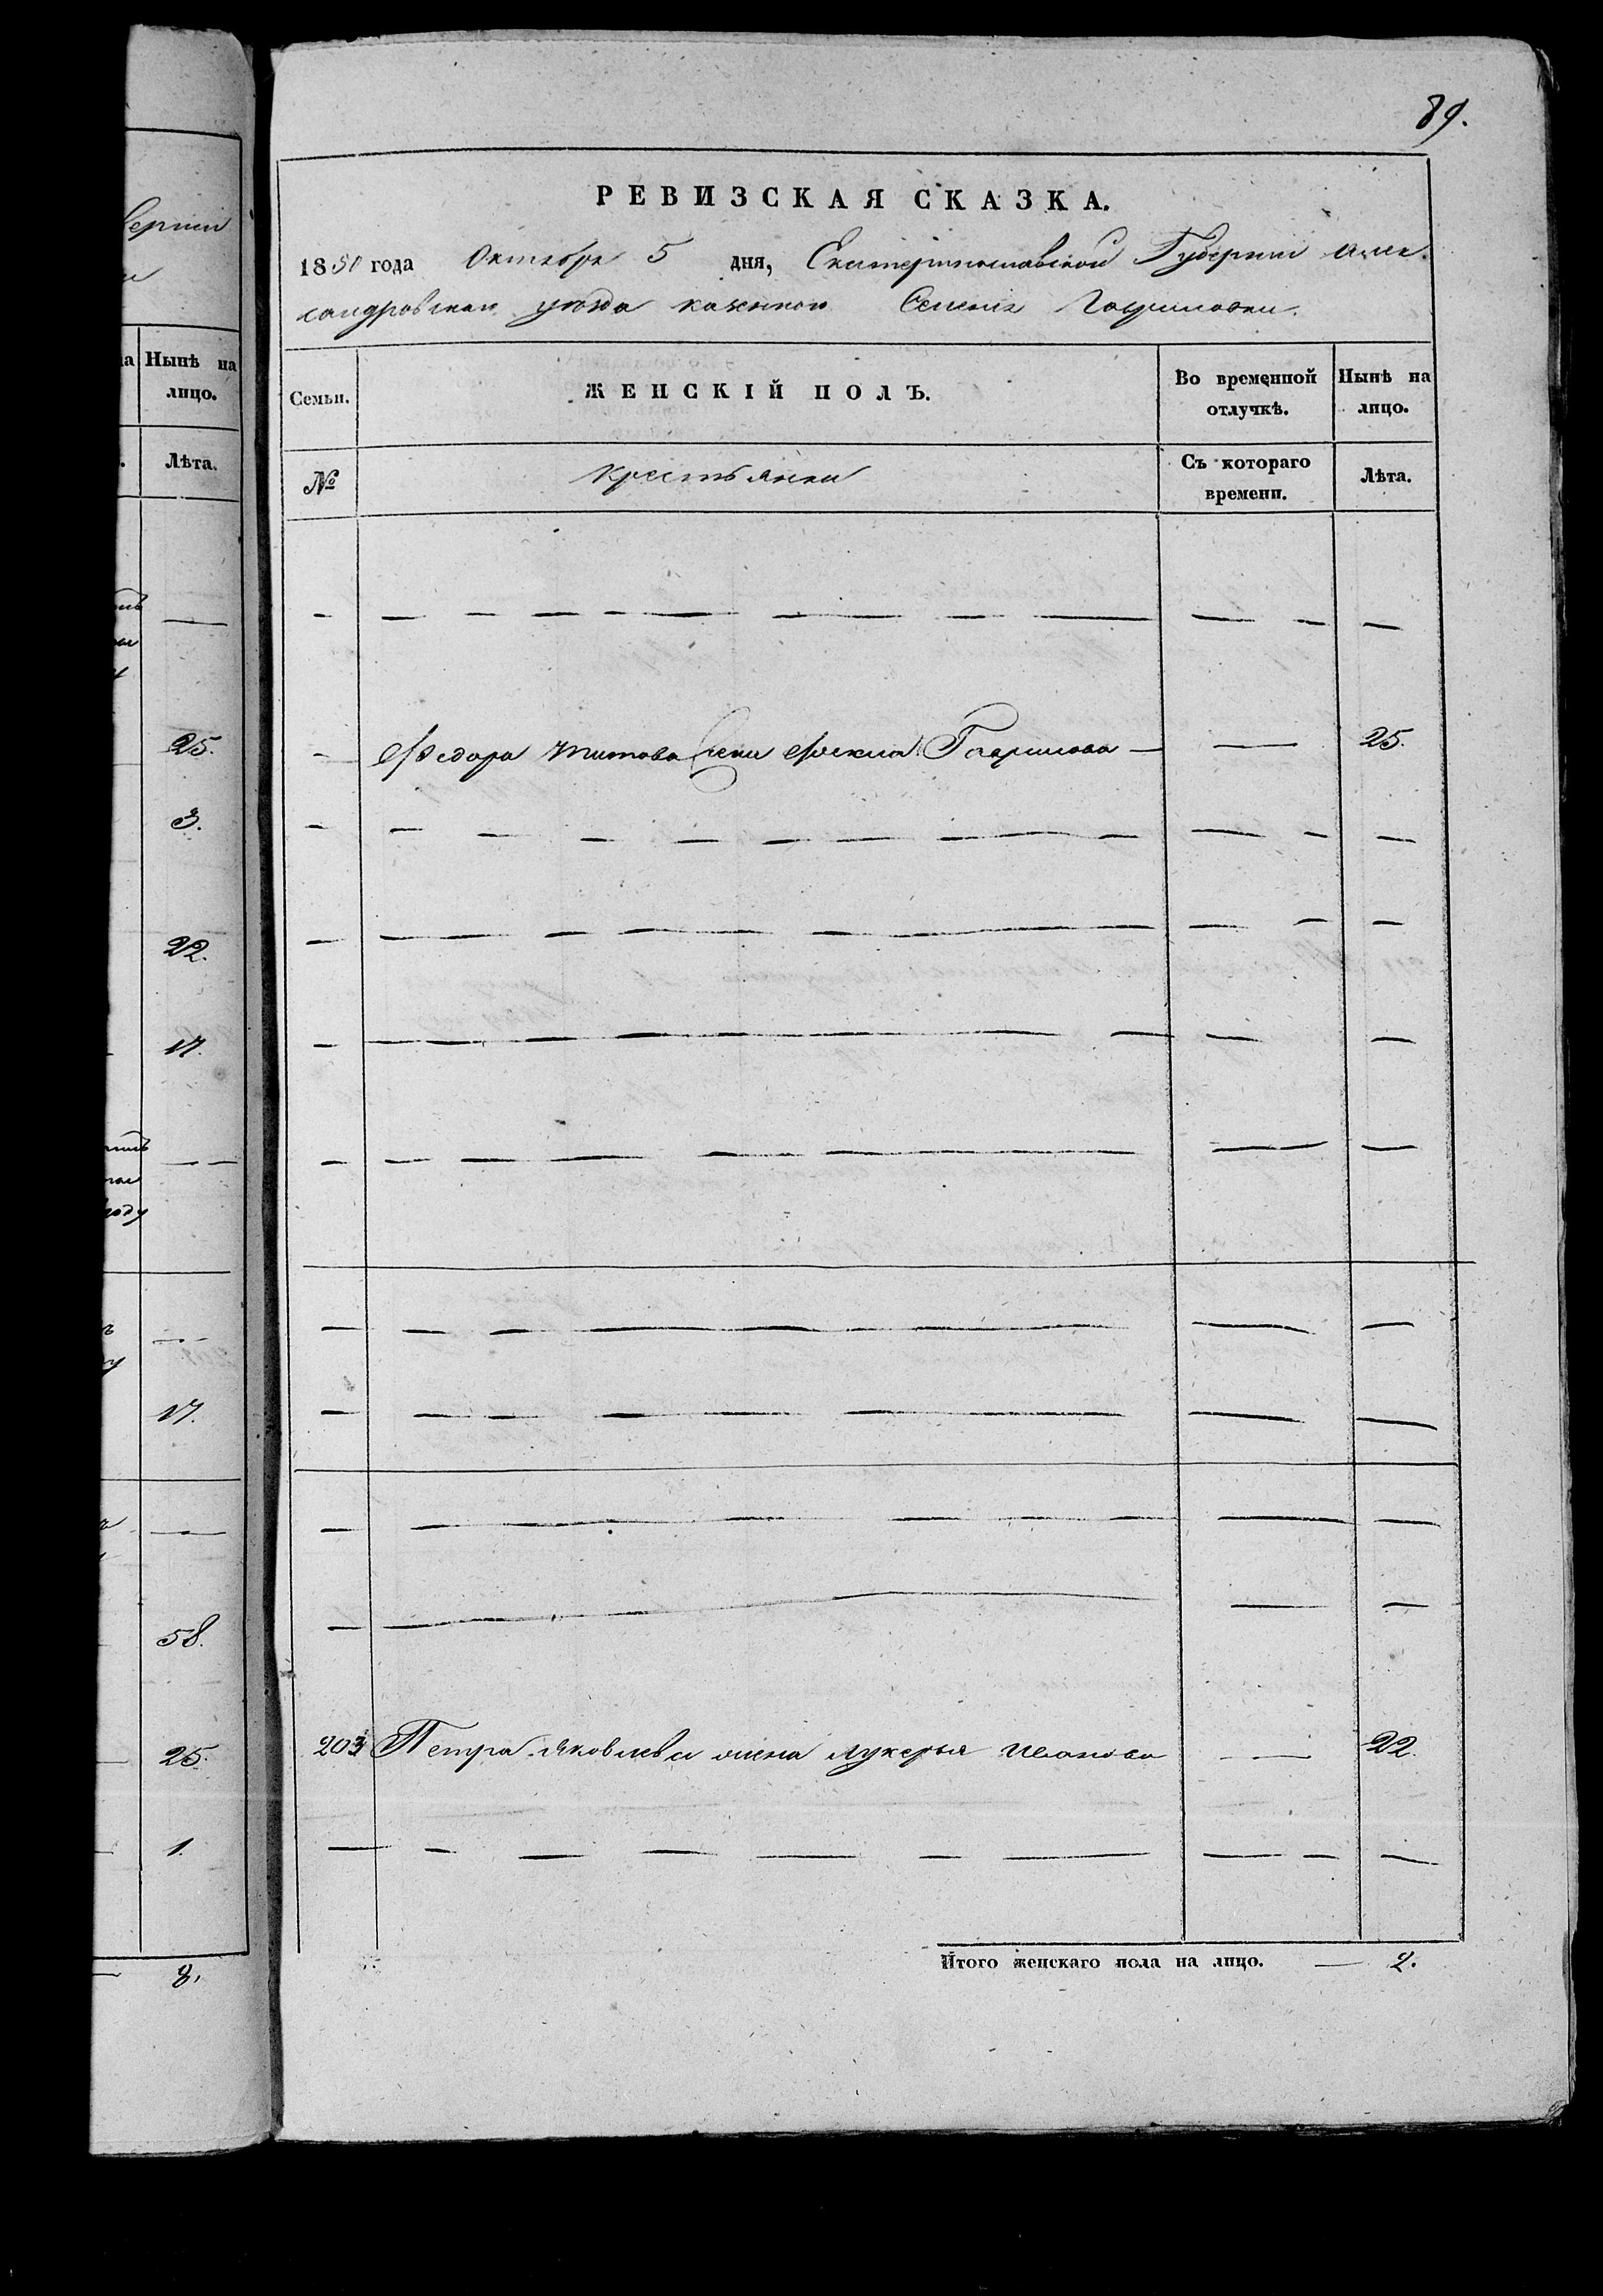 верніи
Нынѣ на
лицо.
Лѣта.
25.
3.
22.
17.
году
17.
58.
25.
1.
8.
89.
РЕВИЗСКАЯ СКАЗКА.
1850 года Октября 5 дня, Екатеринославской Губерніи Алек
сандровскаго уѣзда казеннаго Селенія Гавриловки.
Семьи. ЖЕНСКІЙ ПОЛЪ. Во временной отлучкѣ. Нынѣ на лицо.
№ Крестьянки Съ котораго времени. Лѣта.
Федора Титова жена Фекла Гаврилова — — 25.
203 Петра Яковлева жена Лукерья Иванова — 22.
Итого женскаго пола на лицо. — 2.